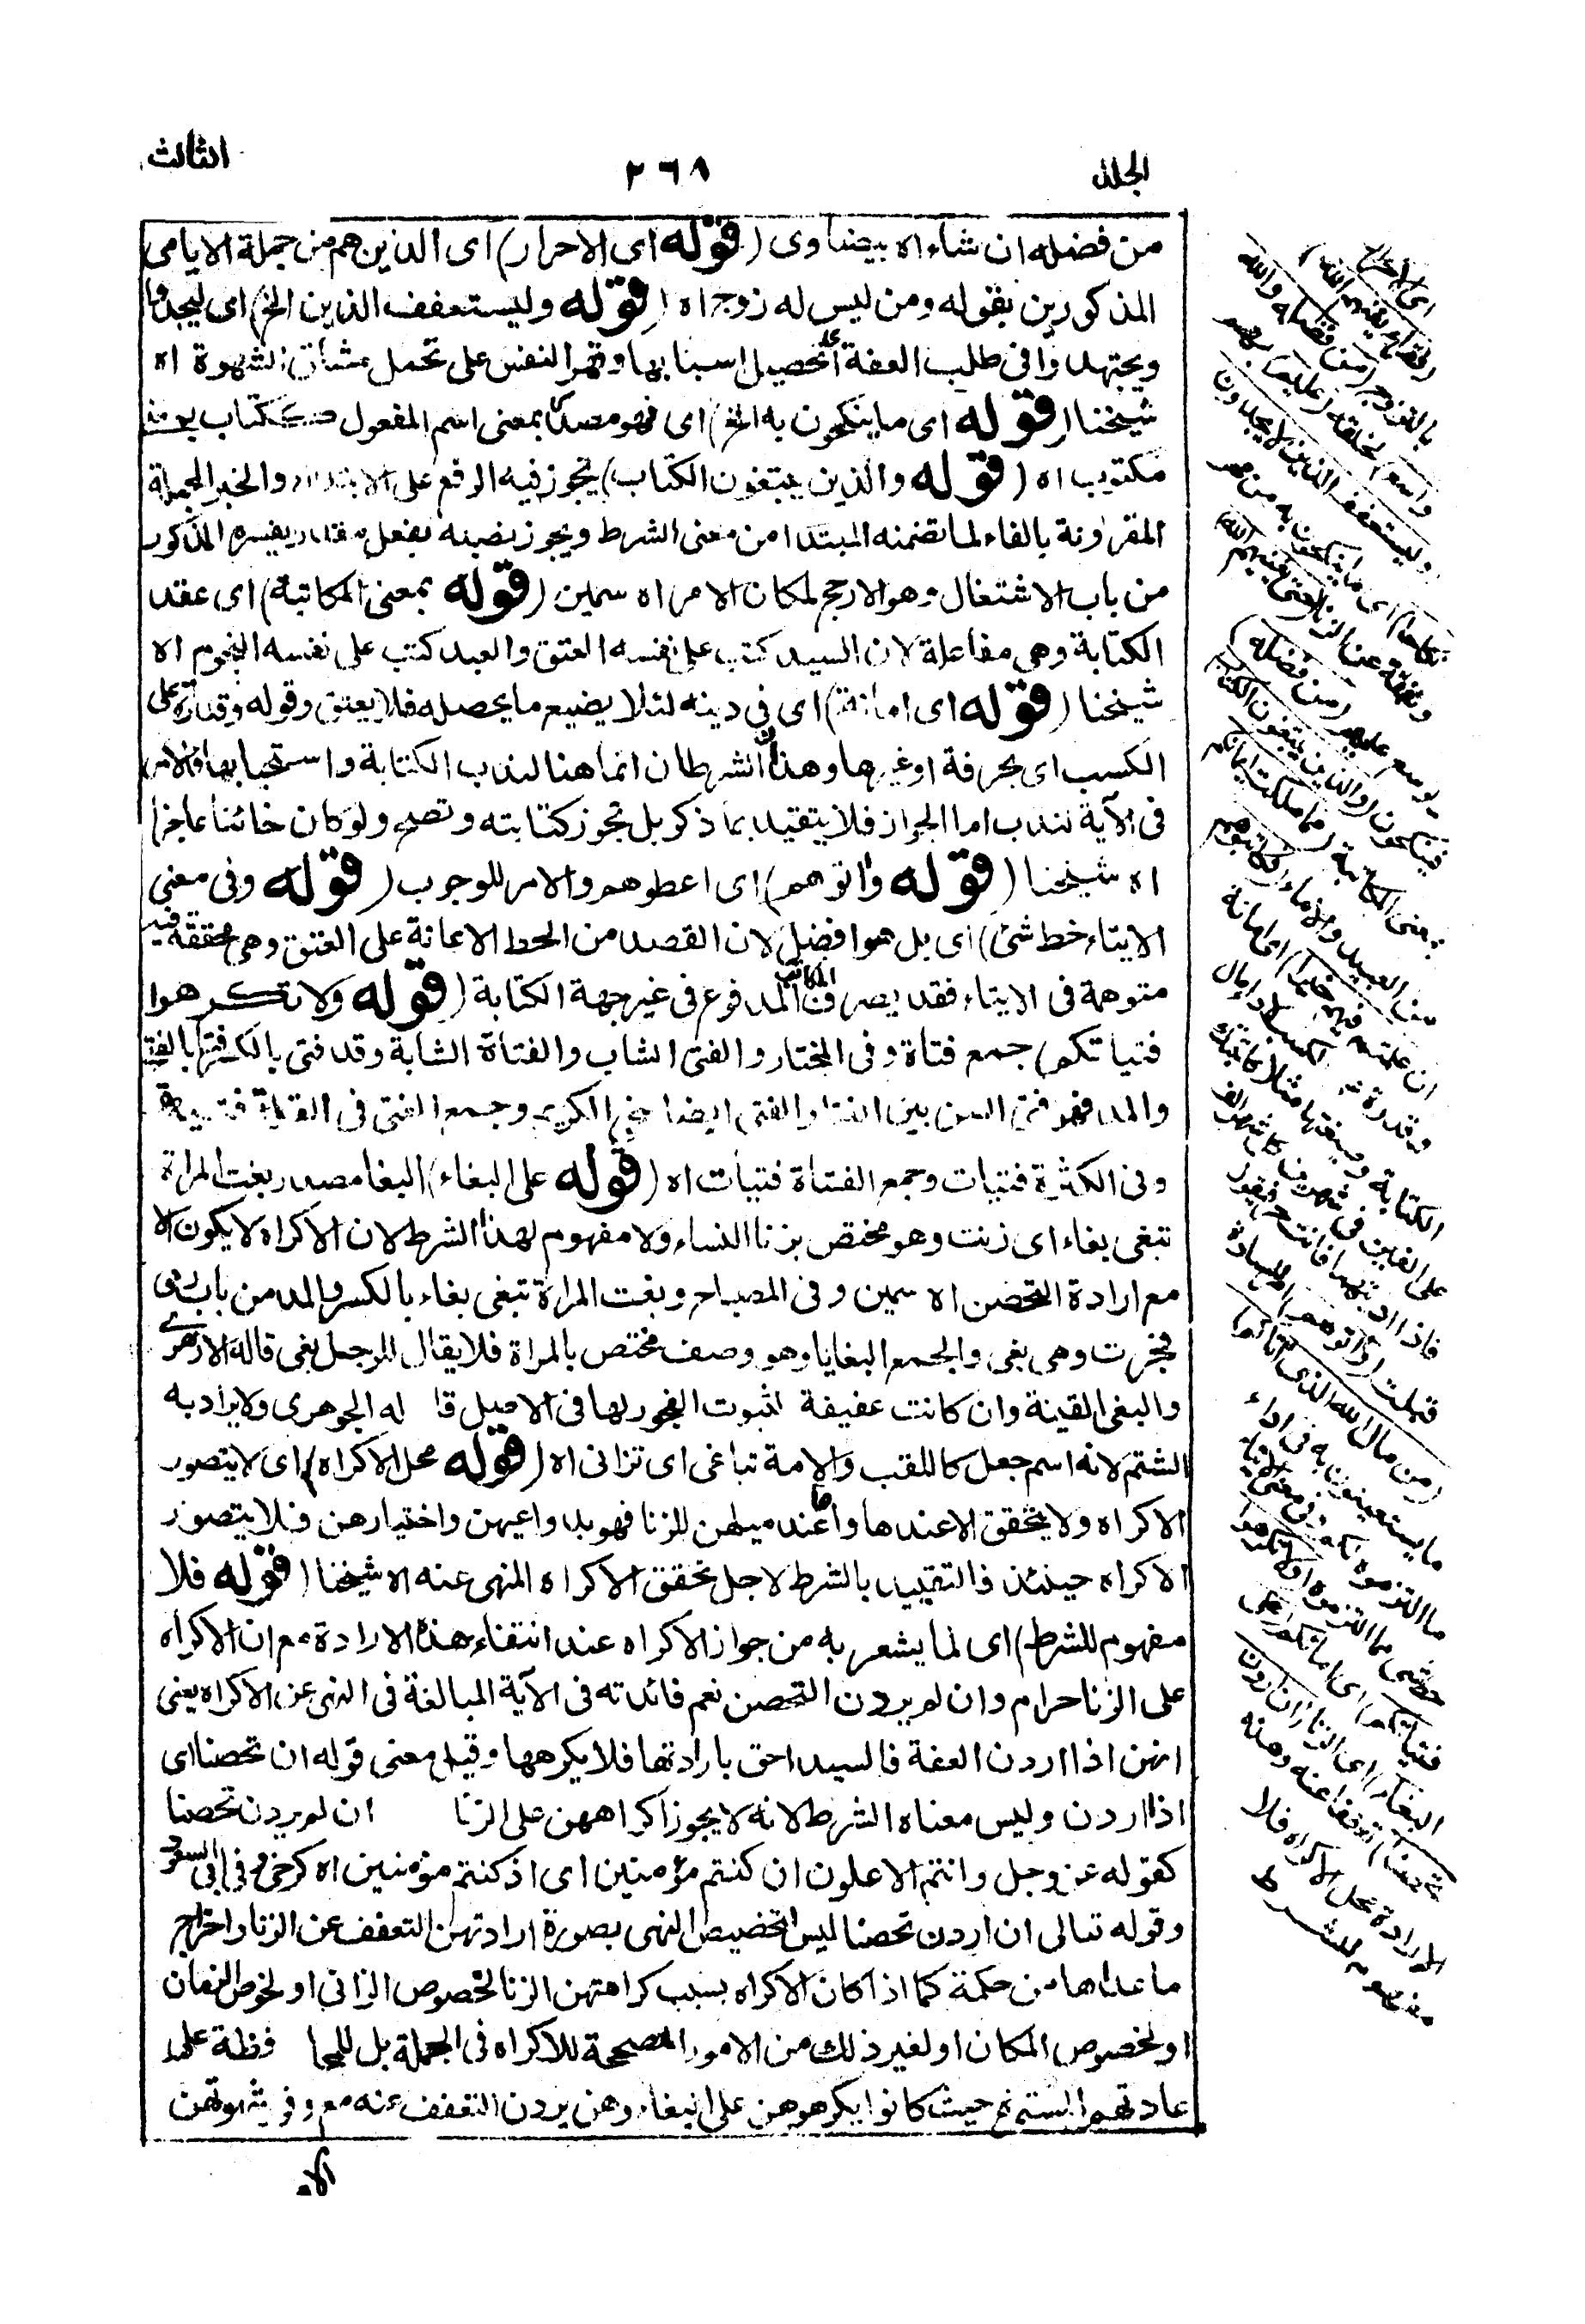 الجلد
٢٦٨
الثالث
من فضله ان شاء اه بيضاوى (قوله اى الاحرار) اى الذين هم من جملة الايامى
المذكورين بقوله ومن ليس له زوج اه (قوله وليستعفف الذين الخ) اى ليجدوا
ويجتهدوا فى طلب العفة اى تحصيل اسبابها وقهر النفس على تحمل مشاق الشهوة اه
شيخنا (قوله اى ما ينكحون به الخ) اى فهو مصدر بمعنى اسم المفعول ككتاب بمعنى
مكتوب اه (قوله والذين يبتغون الكتاب) يجوز فيه الرفع على الابتداء والخبر الجملة
المقرونة بالفاء لما تضمنه المبتدا من معنى الشرط ويجوز نصبه بفعل مقدر يفسره المذكور
من باب الاشتغال وهو الارجح لمكان الامر اه سمين (قوله بمعنى المكاتبة) اى عقد
الكتابة وهى مفاعلة لان السيد كتب على نفسه العتق والعبد كتب على نفسه النجوم اه
شيخنا (قوله اى امانة) اى فى دينه لئلا يضيع ما يحصله فلا يعتق وقوله وقدرة على
الكسب اى بحرفة او غيرها وهذان الشرطان انما هنا لندب الكتابة واستحبابها فالامر
فى الآية للندب اما الجواز فلا يتقيد بما ذكر بل تجوز كتابته وتصح ولو كان خائنا عاجزا
اه شيخنا (قوله وآتوهم) اى اعطوهم والامر للوجوب (قوله وفى معنى
الايتاء حط شئ) اى بل هو افضل لان القصد من الحط الاعانة على العتق وهى محققة فيه
متوهمة فى الايتاء فقد يصرف المكاتب المدفوع فى غير جهة الكتابة (قوله ولا تكرهوا
فتياتكم) جمع فتاة وفى المختار والفتى الشاب والفتاة الشابة وقد فتى بالكسر فتاء بالفتح
والمد فهو فتى السن بين الفتاء والفتى ايضا السخى الكريم وجمع الفتى فى القلة فتية
وفى الكثرة فتيات وجمع الفتاة فتيات اه (قوله على البغاء) البغا مصدر بغت المراة
تبغى بغاء اى زنت وهو مختص بزنا النساء ولا مفهوم لهذا الشرط لان الاكراه لا يكون الا
مع ارادة التحصن اه سمين وفى المصباح وبغت المراة تبغى بغاء بالكسر والمد من باب رمى
فجرت وهى بغى والجمع البغايا وهو وصف مختص بالمراة فلا يقال للرجل بغى قاله الازهرى
والبغى القينة وان كانت عفيفة لثبوت الفجور لها فى الاصل قا له الجوهرى ولا يراد به
الشتم لانه اسم جعل كاللقب والامة تباغى اى تزانى اه (قوله محل الاكراه) اى لا يتصور
الاكراه ولا يتحقق الا عندها واما عند ميلهن للزنا فهو بدواعيهن واختيارهن فلا يتصور
الاكراه حينئذ فالتقييد بالشرط لاجل تحقق الاكراه المنهى عنه اه شيخنا (قوله فلا
مفهوم للشرط) اى لما يشعر به من جواز الاكراه عند انتفاء هذه الارادة مع ان الاكراه
على الزنا حرام وان لم يردن التحصن نعم فائدته فى الآية المبالغة فى النهى عن الاكراه يعنى
انهن اذا اردن العفة فالسيد احق بارادتها فلا يكرهها وقيل معنى قوله ان تحصنا اى
اذا اردن وليس معناه الشرط لانه لا يجوز اكراههن على الزنا ان لم يردن تحصنا
كقوله عز وجل وانتم الاعلون ان كنتم مؤمنين اى اذ كنتم مؤمنين اه كرخى وفى ابى السعود
وقوله تعالى ان اردن تحصنا ليس لتخصيص النهى بصورة ارادتهن التعفف عن الزنا واخراج
ما عداها من حكمه كما اذا كان الاكراه بسبب كراهتهن الزنا لخصوص الزانى او لخصوص الزمان
او لخصوص المكان او لغير ذلك من الامور المصححة للاكراه فى الجملة بل للمحا فظة على
عادتهم المستمرة حيث كانوا يكرهوهن على البغاء وهن يردن التعفف عنه مع وفور شهوتهن
الآ
اى الاحرار
(من فضله والله
واسع) لخلقه (عليم) بهم
وليستعفف الذين لا يجدون
نكاحا) اى ما ينكحون به من مهر
ونفقة عن الزنا (حتى يغنيهم الله)
يوسع عليهم (من فضله)
فينكحون (والذين يبتغون الكتاب)
بمعنى المكاتبة (مما ملكت ايمانكم)
من العبيد والاماء (فكاتبوهم
ان علمتم فيهم خيرا) اى امانة
وقدرة على الكسب لاداء مال
الكتابة وصيغتها مثلا كاتبتك
على الفين فى شهرين كل شهر الف
فاذا اديتهما فانت حر فيقول
قبلت (وآتوهم) امر للسادة
(من مال الله الذى آتاكم)
ما يستعينون به فى اداء
ما التزموه لكم وفى معنى الايتاء
حط شئ مما التزموه (ولا تكرهوا
فتياتكم) اى اماءكم (على
البغاء) اى الزنا (ان اردن
تحصنا) تعففا عنه وهذه
الارادة محل الاكراه فلا
مفهوم للشرط